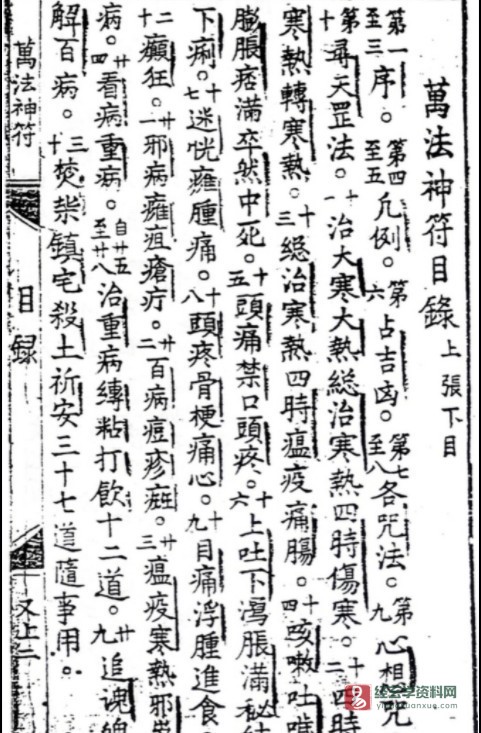 萬法神符目錄 上張下目
第一至三序。第四至五凡例。第六占吉凶。第七至八各咒法。第九心想咒
第十尋天罡法。十一治大寒大熱総治寒熱四時傷寒。十二四時
寒熱轉寒熱。十三総治寒熱四時瘟疫痛腸。十四咳嗽吐
膨脹痞滿卒然中死。十五頭痛禁口頭疼。十六上吐下瀉脹滿秘
下痢。十七迷恍癰腫痛。十八頭疼骨梗痛心。十九目痛浮腫進食
二十癲狂。廿一邪病癰疽瘡疔。廿二百病痘疹。廿三瘟疫寒熱邪
病。廿四看病重病。自廿五至廿八治重病縳粘打飲十二道。廿九追魂
解百病。三十焚柴鎮宅殺土祈安三十七道隨事用。
萬法神符 目録 又上二
易
资料网